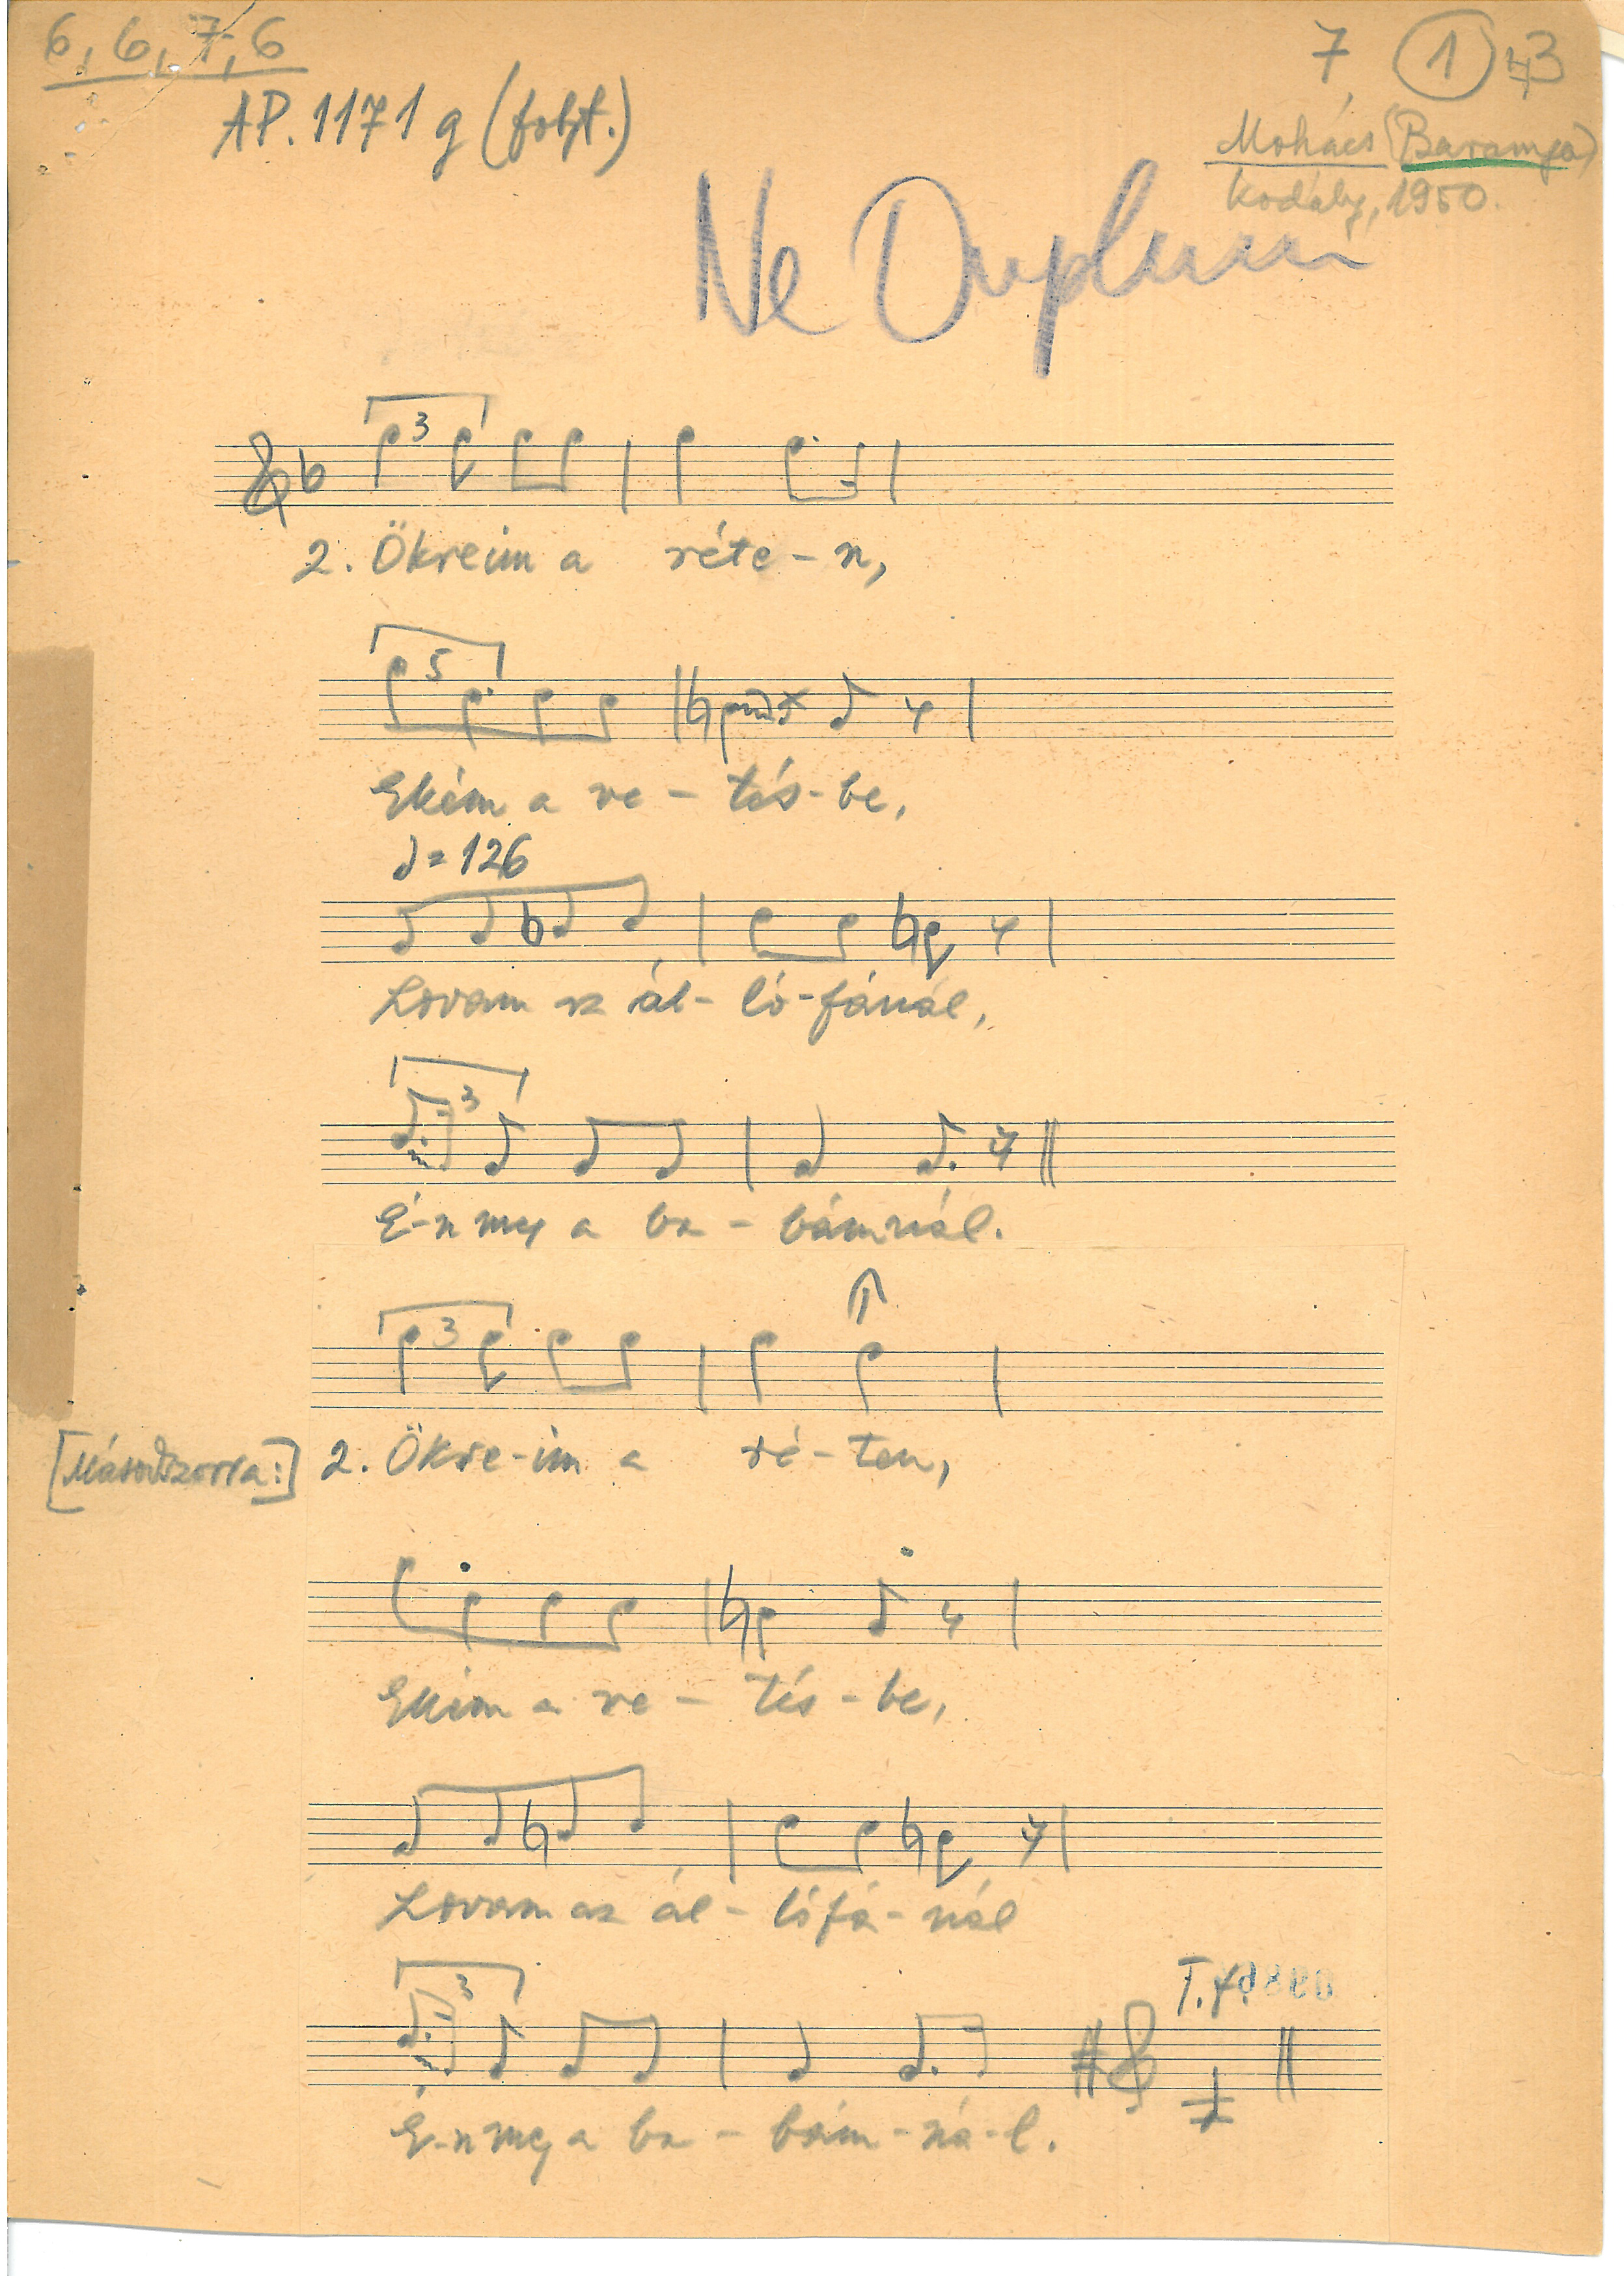 6, 6, 7, 6
7, 1 43
AP. 1171 g (folyt.)
Mohács (Baranya)
Kodály, 1950.
Ne Duplum
3
2. Ökreim a réte-n,
5
Ekém a ve-tés-be,
♩=126
Lovam az ál-ló-fánál,
3
É-n meg a ba-bámnál.
3
[Másodszorra:] 2. Ökre-im a ré-ten,
Ekém a ve-tés-be,
Lovam az ál-lófá-nál
3
T.f.
É-n meg a ba-bám-ná-l.